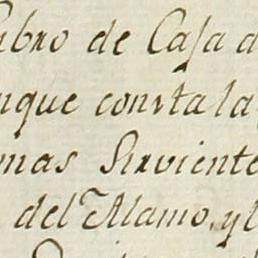 Libro de Casa d
nque consta la
mas Sirviente
del Alamo, y l